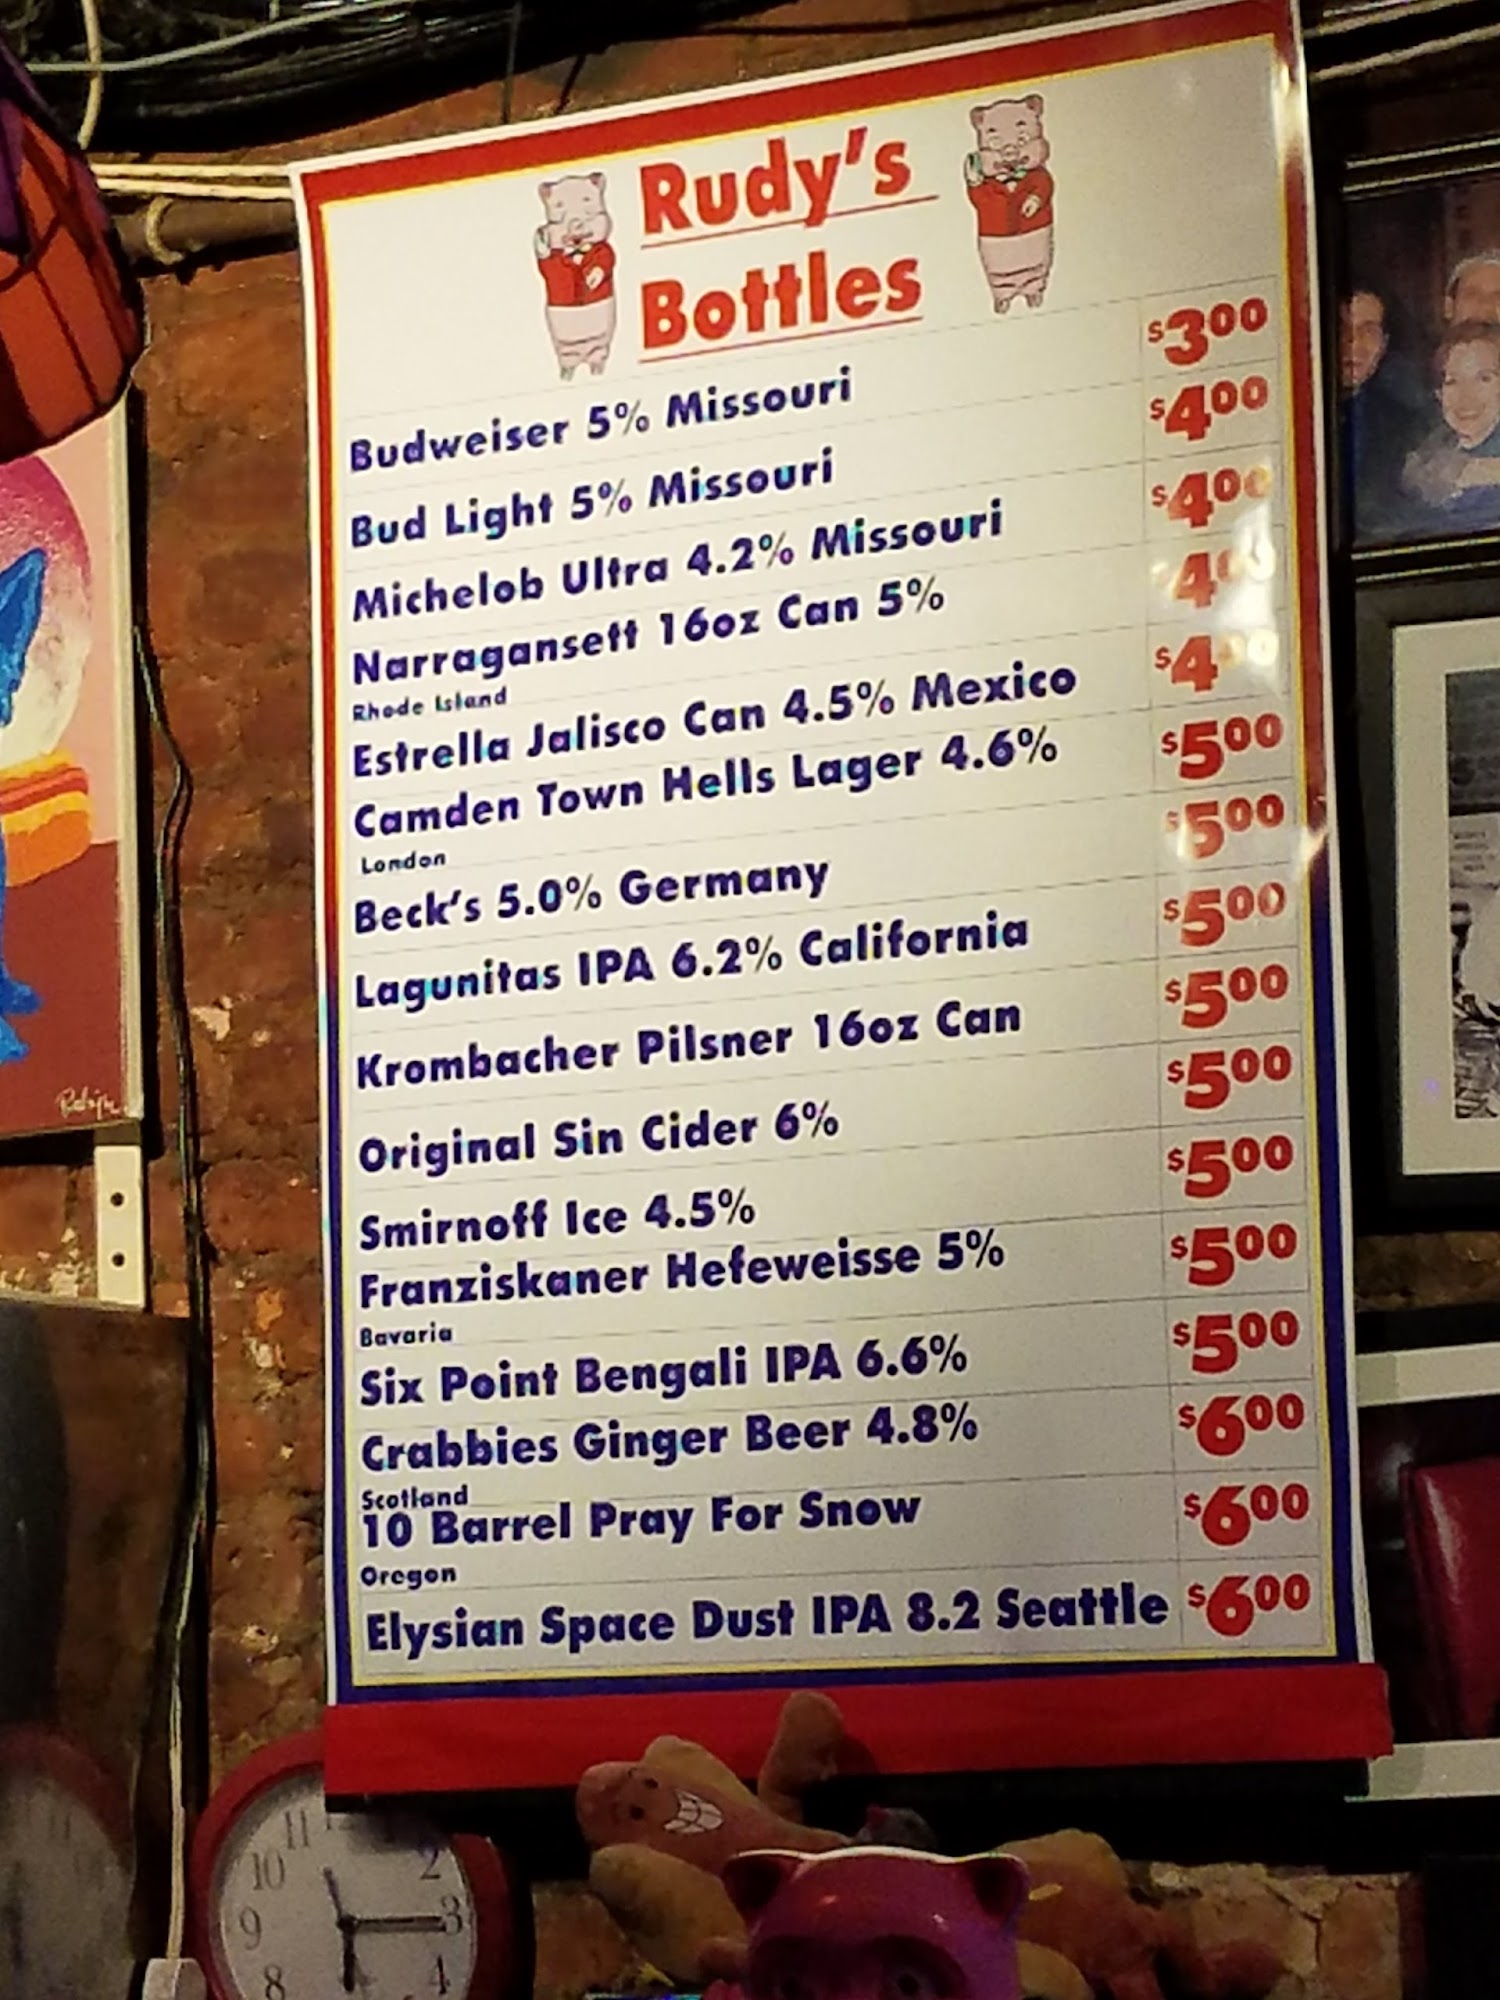 Rudy's
Bottles
Budweiser 5% Missouri $3.00
Bud Light 5% Missouri $4.00
Michelob Ultra 4.2% Missouri $4.00
Narragansett 16oz Can 5% $4.00
Rhode Island
Estrella Jalisco Can 4.5% Mexico $4.00
Camden Town Hells Lager 4.6% $5.00
London
Beck's 5.0% Germany $5.00
Lagunitas IPA 6.2% California $5.00
Krombacher Pilsner 16oz Can $5.00
Original Sin Cider 6% $5.00
Smirnoff Ice 4.5% $5.00
Franziskaner Hefeweisse 5% $5.00
Bavaria
Six Point Bengali IPA 6.6% $5.00
Crabbies Ginger Beer 4.8% $6.00
Scotland
10 Barrel Pray For Snow $6.00
Oregon
Elysian Space Dust IPA 8.2 Seattle $6.00
11
10 2
9 3
8 4